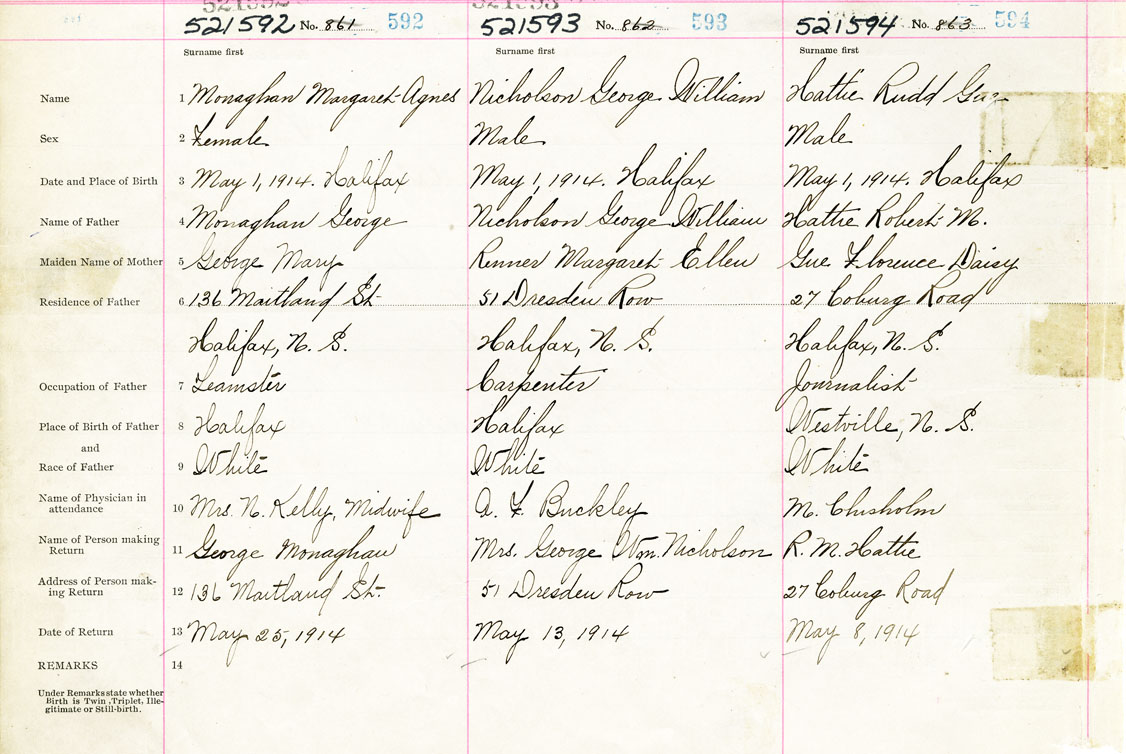 521592 521593
521592 No. 861 592 521593 No. 862 593 521594 No. 863 594
Surname first Surname first Surname first
Name 1 Monaghan Margaret Agnes Nicholson George William Hattie Rudd Gue
Sex 2 Female Male Male
Date and Place of Birth 3 May 1, 1914. Halifax May 1, 1914. Halifax May 1, 1914. Halifax
Name of Father 4 Monaghan George Nicholson George William Hattie Robert M.
Maiden Name of Mother 5 George Mary Renner Margaret Ellen Gue Florence Daisy
Residence of Father 6 136 Maitland St. 51 Dresden Row 27 Coburg Road
Halifax, N. S. Halifax, N. S. Halifax, N. S.
Occupation of Father 7 Teamster Carpenter Journalist
Place of Birth of Father 8 Halifax Halifax Westville, N. S.
and
Race of Father 9 White White White
Name of Physician in
attendance 10 Mrs. N. Kelly, Midwife A. F. Buckley M. Chisholm
Name of Person making
Return 11 George Monaghan Mrs. George Wm. Nicholson R. M. Hattie
Address of Person mak-
ing Return 12 136 Maitland St. 51 Dresden Row 27 Coburg Road
Date of Return 13 May 25, 1914 May 13, 1914 May 8, 1914
REMARKS 14
Under Remarks state whether
Birth is Twin, Triplet, Ille-
gitimate or Still-birth.